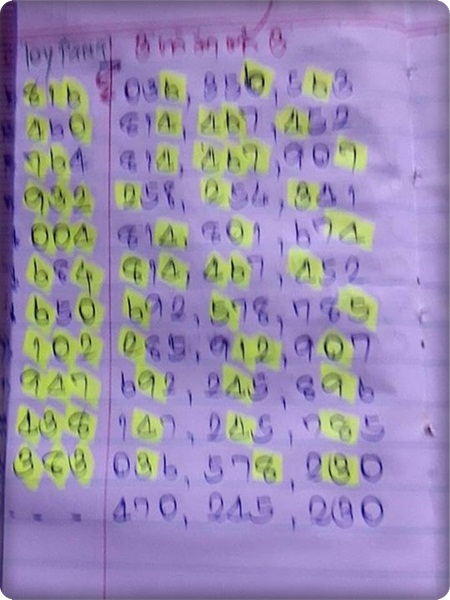 816 036, 356, 563
460 814, 467, 452
764 814, 467, 907
932 258, 254, 341
004 814, 801, 674
684 814, 467, 452
650 692, 578, 785
102 285, 912, 907
947 692, 245, 896
438 147, 245, 785
383 036, 578, 230
- - - 470, 245, 230